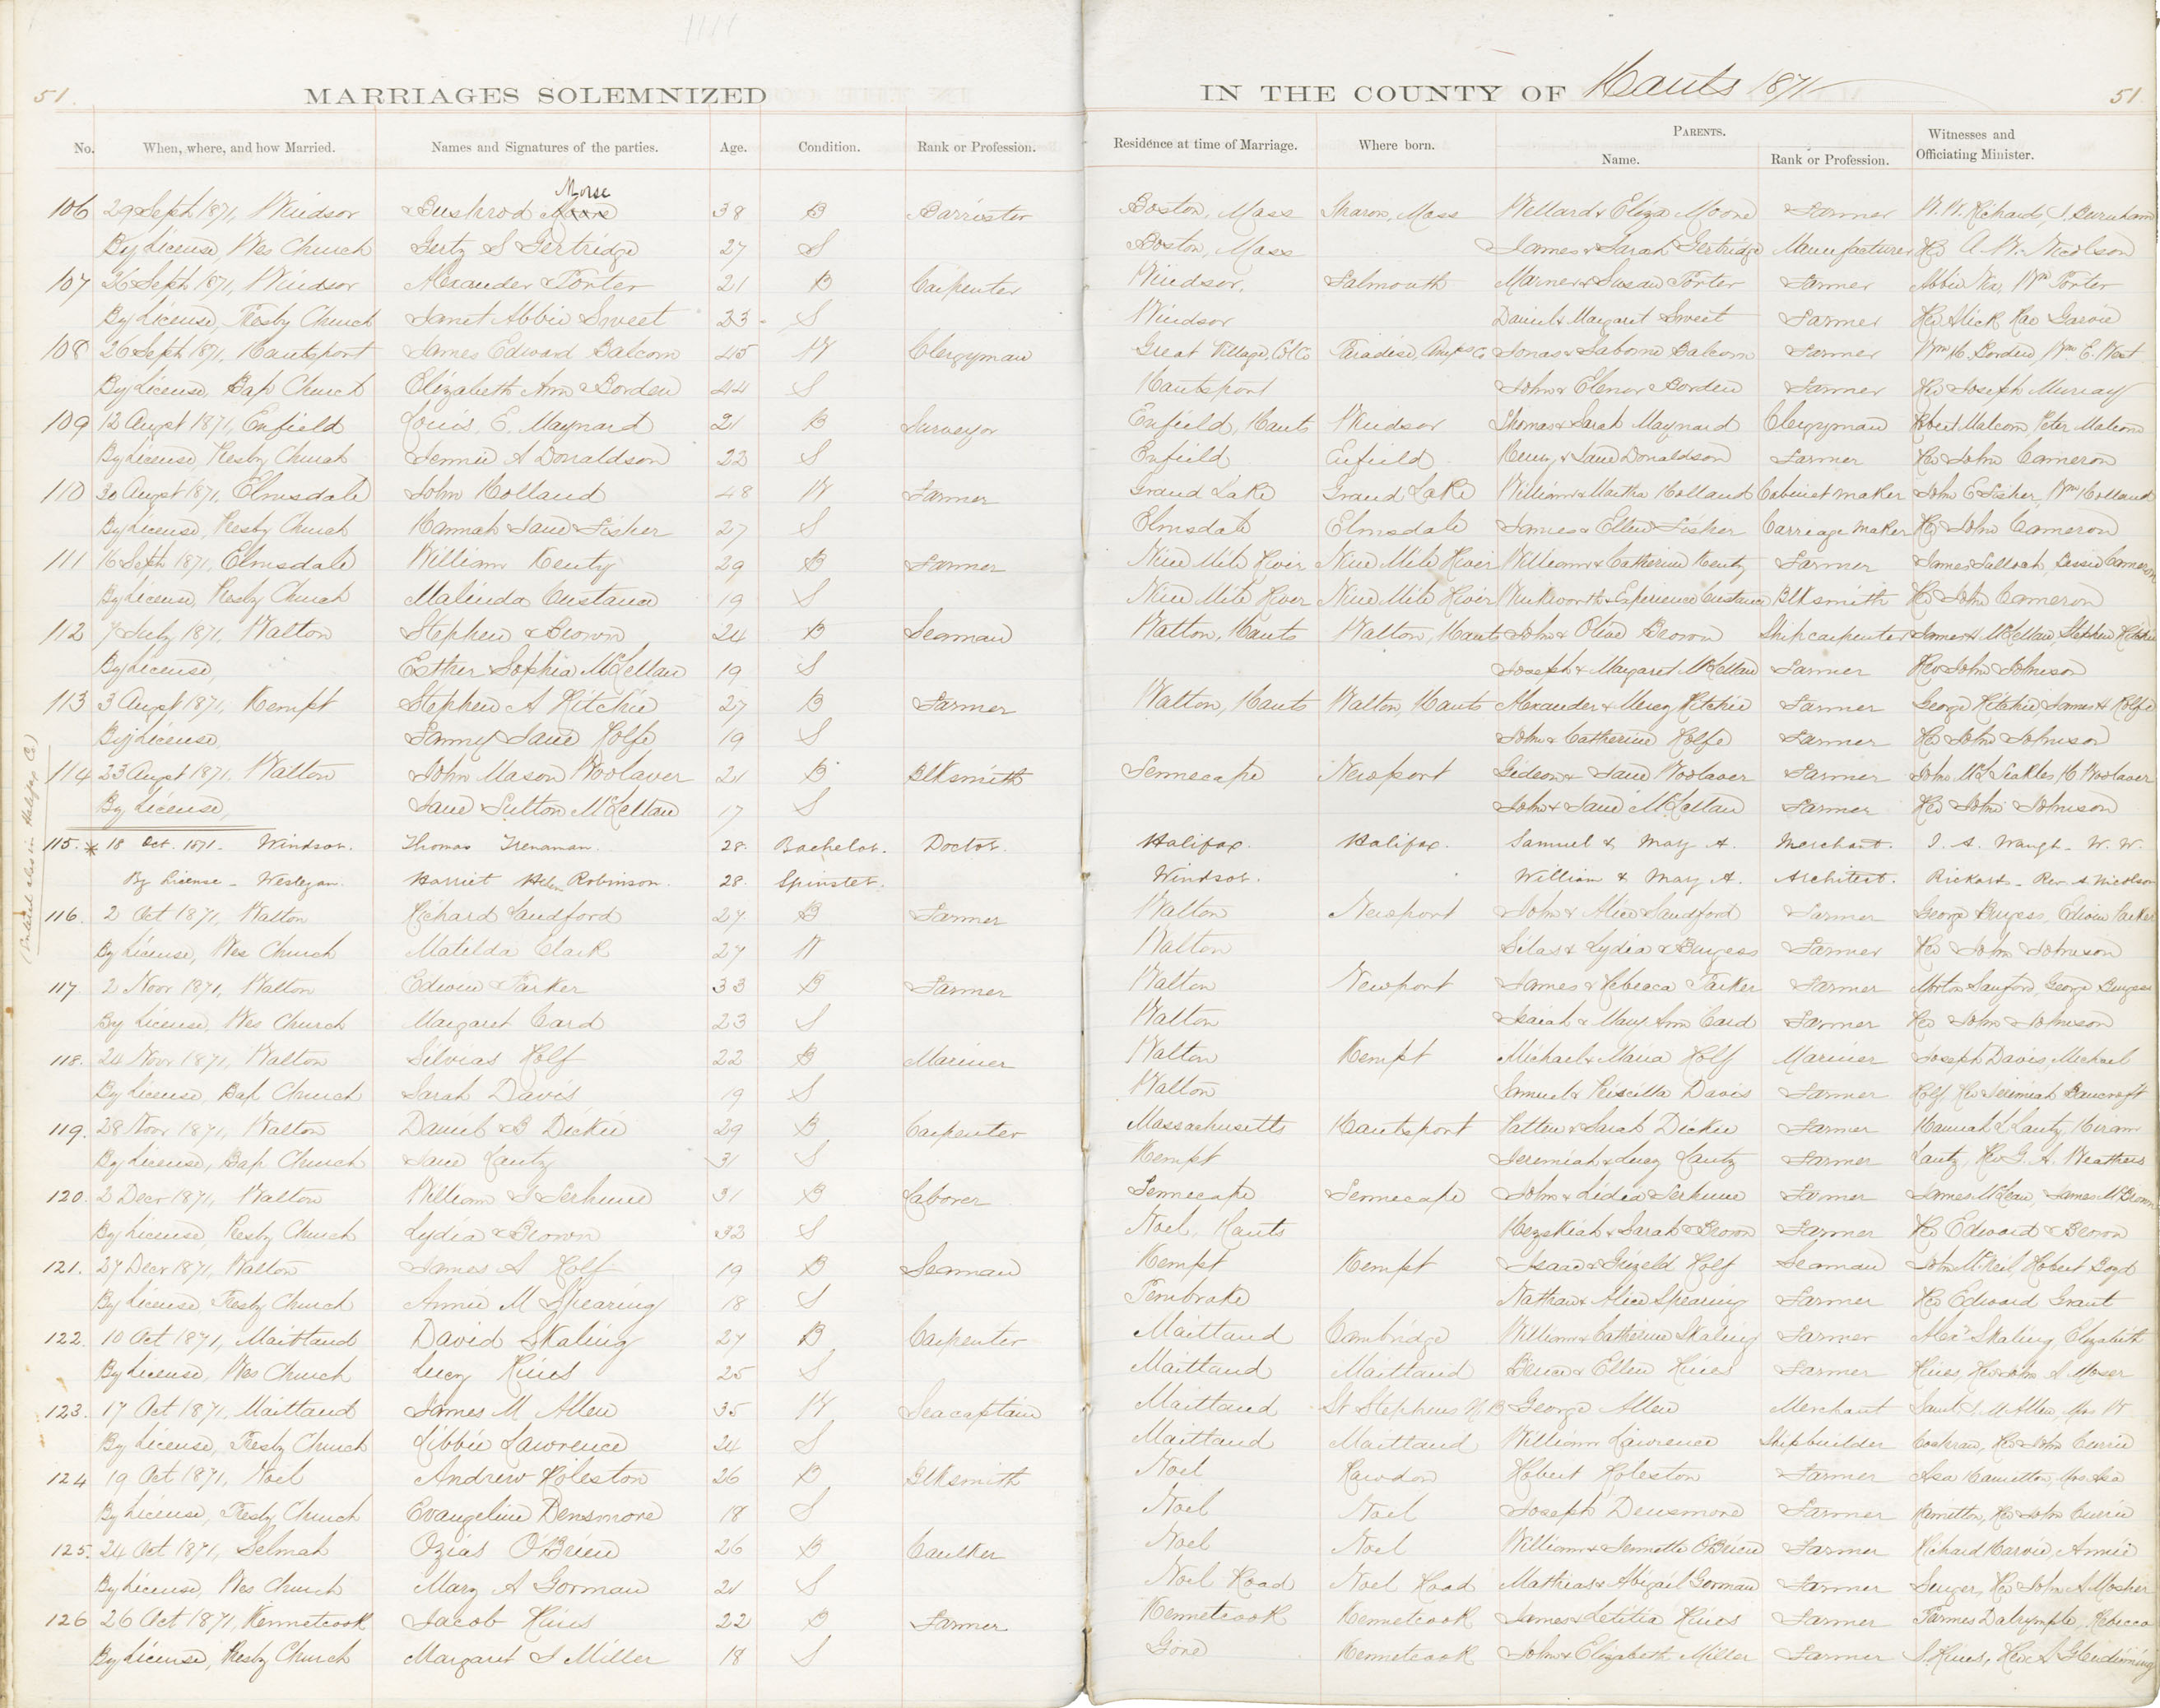 51.
MARRIAGES SOLEMNIZED
IN THE COUNTY OF Hants 1871
51
No. When, where, and how Married. Names and Signatures of the parties. Age. Condition. Rank or Profession. Residence at time of Marriage. Where born. PARENTS. Name. Rank or Profession. Witnesses and Officiating Minister.
Morse
106 29 Sept 1871, Windsor Bushrod Moore 38 B Barrister Boston, Mass Sharon, Mass Willard & Eliza Moore Farmer W. W. Richards, J. Burnham
By License, Wes Church S Gertridge 27 S Boston, Mass James & Sarah Gertridge Manufacturer Rev A. W. Nicolson
107 26 Sept 1871, Windsor Alexander Porter 21 B Carpenter Windsor, Falmouth Warner & Susan Porter Farmer Abbie Nix, Wm Porter
By License, Presby Church Janet Abbie Sweet 23 S Windsor Daniel & Margaret Sweet Farmer Rev
108 26 Sept 1871, Hantsport James Edward Balcom 45 W Clergyman Great Village, Col Co Paradise, Jonas & Balcom Farmer Wm H. Borden, Wm E. West
By License, Bap Church Elizabeth Ann Borden 44 S Hantsport John & Elenor Borden Farmer Rev Joseph Murray
109 12 Augst 1871, Enfield Louis, E. Maynard 21 B Surveyor Enfield, Hants Windsor Thomas & Sarah Maynard Clergyman Robert Malcom, Peter Malcom
By License, Presby Church Jennie A Donaldson 22 S Enfield Enfield Henry & Jane Donaldson Farmer Rev John Cameron
110 30 Augst 1871, Elmsdale John Holland 48 W Farmer Grand Lake Grand Lake William & Martha Holland Cabinet maker John E Fisher, Wm Holland
By License, Presby Church Hannah Jane Fisher 27 S Elmsdale Elmsdale James & Ellen Fisher Carriage Maker Rev John Cameron
111 16 Sept 1871, Elmsdale William Kenty 29 B Farmer Nine Mile River Nine Mile River William & Catherine Kenty Farmer James Bessie Cameron
By License, Presby Church Malinda Custance 19 S Nine Mile River Nine Mile River Winkworth & Experience Custance Blksmith Rev John Cameron
112 7 July 1871, Walton Stephen Brown 24 B Seaman Walton, Hants Walton, Hants John & Olive Brown Shipcarpenter James McLellan, Stephen Ritchie
By License, Esther Sophia McLellan 19 S Joseph & Margaret McLellan Farmer Rev John Johnson
113 3 Augst 1871, Kempt Stephen A Ritchie 27 B Farmer Walton, Hants Walton, Hants Alexander & Mercy Ritchie Farmer George Ritchie, James H Rolfe
By License, Fanny Jane Rolfe 19 S John & Catherine Rolfe Farmer Rev John Johnson
114 23 Augst 1871, Walton John Mason Woolaver 21 B Blksmith Tennecape Newport Gideon & Jane Woolaver Farmer John McL Sickles, H. Woolaver
By License, Jane Sutton McLellan 17 S John & Jane McLellan Farmer Rev John Johnson
(Entered also in Halifax Co.)
115. * 18 Oct. 1871. Windsor. Thomas Trenaman. 28. Bachelor. Doctor. Halifax. Halifax. Samuel & Mary A. Merchant. J. A. Waugh - W. W.
By License - Wesleyan. Harriet Helen Robinson. 28. Spinster. Windsor. William & Mary A. Architect. Rickards - Rev. A. Nicolson
116. 2 Oct 1871, Walton Richard Sandford 27 B Farmer Walton Newport John & Alice Sandford Farmer George Burgess, Edwin Parker
By License, Wes Church Matilda Clark 27 W Walton Silas & Lydia Burgess Farmer Rev John Johnson
117. 2 Novr 1871, Walton Edwin Parker 33 B Farmer Walton Newport James & Rebecca Parker Farmer Morton Sanford, George Burgess
By License, Wes Church Margaret Card 23 S Walton Isaiah & Mary Ann Card Farmer Rev John Johnson
118. 24 Novr 1871, Walton Silvias Rolf 22 B Mariner Walton Kempt Michael & Maria Rolf Mariner Joseph Davis, Michael
By License, Bap Church Sarah Davis 19 S Walton Samuel & Priscilla Davis Farmer Rolf, Rev Jeremiah Bancroft
119. 28 Novr 1871, Walton Daniel B Dickie 29 B Carpenter Massachusetts Hantsport Patten & Sarah Dickie Farmer Hannah L Lantz, Hiram
By License, Bap Church Jane Lantz 31 S Kempt Jeremiah & Lucy Lantz Farmer Lantz, Rev G. A. Weathers
120. 2 Decr 1871, Walton William J Serhune 31 B Laborer Tennecape Tennecape John & Lidia Serhune Farmer James McLean, James McBrown
By License, Presby Church Lydia Brown 32 S Noel, Hants Hezekiah & Sarah Brown Farmer Rev Edward Brown
121. 27 Decr 1871, Walton James A Rolf 19 B Seaman Kempt Kempt Isaac & Grizeld Rolf Seaman John McNeil, Robert Boyd
By License, Presby Church Annie M Spearing 18 S Pembroke Nathan & Alice Spearing Farmer Rev Edward Grant
122. 10 Oct 1871, Maitland David Skaling 27 B Carpenter Maitland Cambridge William & Catherine Skaling Farmer Alexr Skaling, Elizabeth
By License, Wes Church Lucy Hines 25 S Maitland Maitland & Ellen Hines Farmer Hines, Rev John S Moser
123. 17 Oct 1871, Maitland James M Allen 35 W Seacaptain Maitland St Stephens N B George Allen Merchant Allen, Mrs W
By License, Presby Church Libbie Lawrence 24 S Maitland Maitland William Lawrence Shipbuilder Cochran, Rev John Currie
124 19 Oct 1871, Noel Andrew Roleston 26 B Blksmith Noel Rawdon Robert Roleston Farmer Asa Hamilton, Mrs Asa
By License, Presby Church Evangeline Densmore 18 S Noel Noel Joseph Densmore Farmer Hamilton, Rev John Currie
125. 24 Oct 1871, Selmah Ozias O'Brien 26 B Caulker Noel Noel William & Jennette O'Brien Farmer Richard Harvie, Annie
By License, Wes Church Mary A Gorman 21 S Noel Road Noel Road Mathias & Abigail Gorman Farmer Rev John A Mosher
126 26 Oct 1871, Kennetcook Jacob Hines 22 B Farmer Kennetcook Kennetcook James & Letitia Hines Farmer James Dalrymple, Rebecca
By License, Presby Church Margaret J Miller 18 S Gore Kennetcook John & Elizabeth Miller Farmer J. Hines, Rev A Glendinning